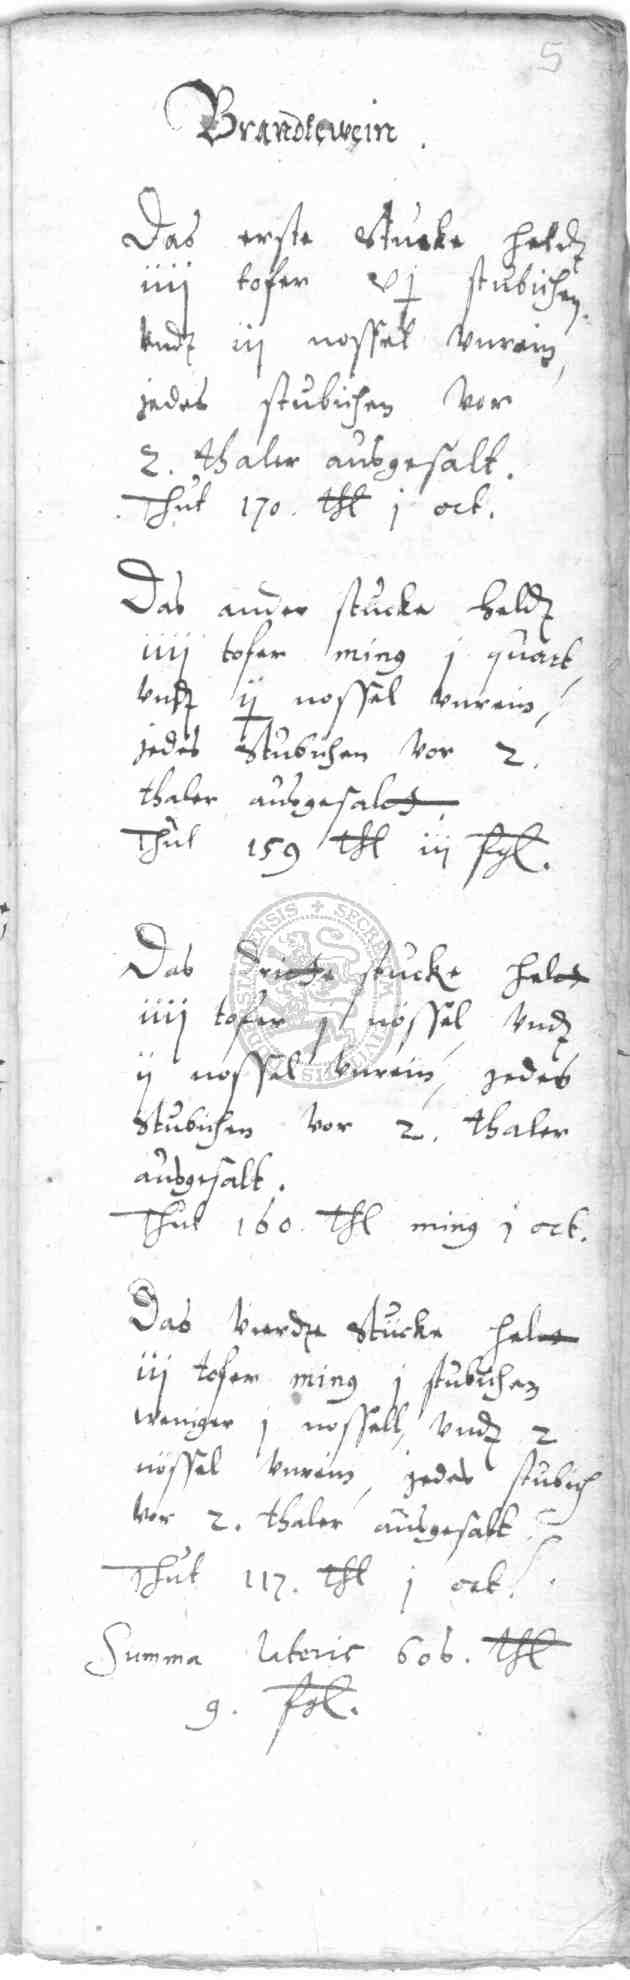 5
Brandtewein.
Das erste Stucke heldt
iiij tofer vj stubichen
vndt iij nossel vnrein,
jedes stubichen vor
2. thaler ausgesalt.
Thut 170. thl j ort.
Das ander stucke heldt
iiij tofer ming j quart,
vndt ij nossel vnrein,
jedes Stubichen vor 2.
thaler ausgesalt.
Thut 159 thl iij fgl.
Das dritte stucke helt
iiij tofer j nossel, vndt
ij nossel vnrein, jedes
Stubichen vor 2. thaler
ausgesalt.
Thut 160. thl ming j ort.
Das vierdte Stucke helt
iij tofer ming j stubichen
weniger j nossell, vndt 2
nössel vnrein, jedes stubich
vor 2. thaler ausgesalt
Thut 117. thl j ort.
Summa lateris 606. thl
9. fgl.